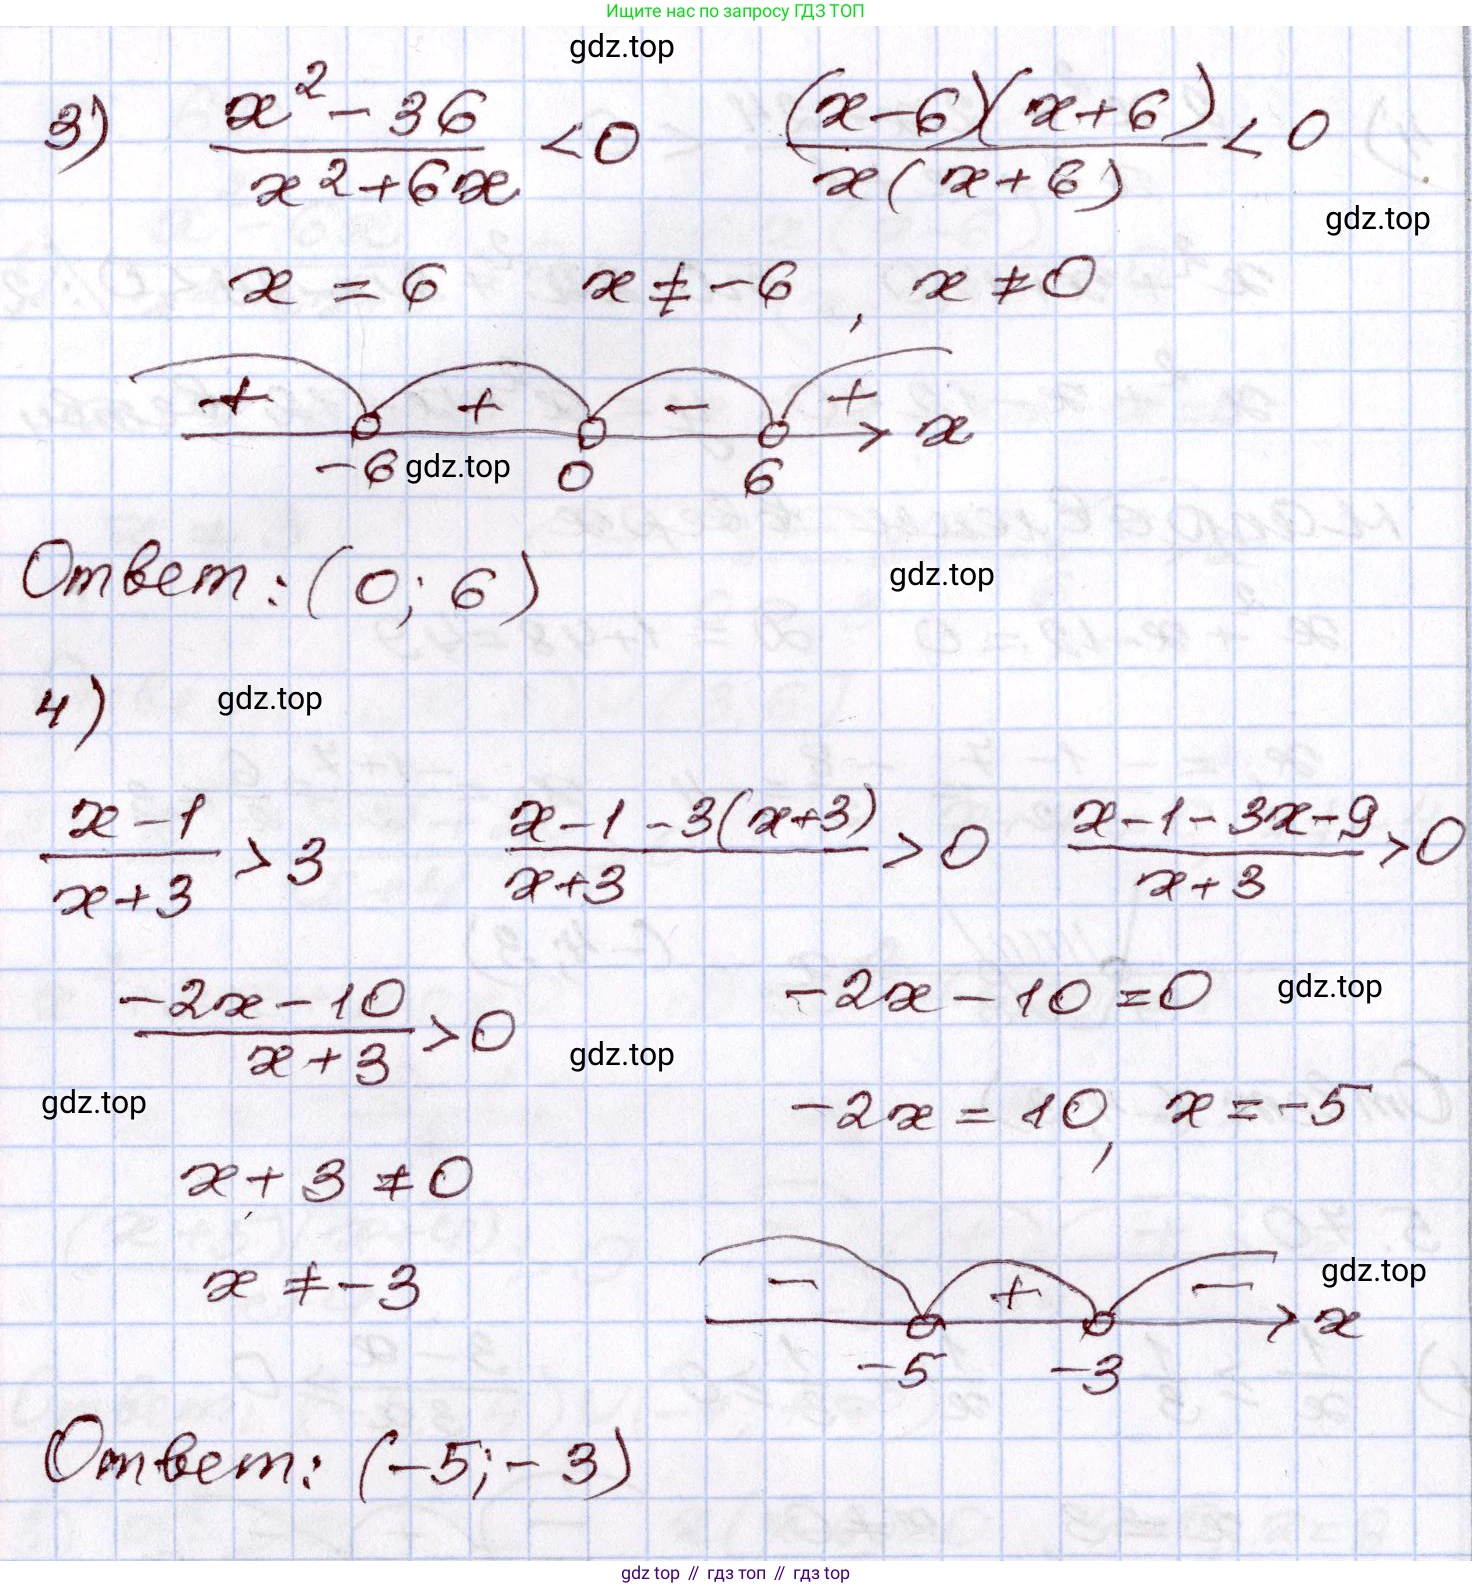 Ищите нас по запросу ГДЗ ТОП
gdz.top
3) (x² - 36)/(x² + 6x) < 0    ((x-6)(x+6))/(x(x+6)) < 0
gdz.top
x = 6    x ≠ -6, x ≠ 0
+ + - +
-6 0 6 x
gdz.top
Ответ: (0; 6)
gdz.top
4)
gdz.top
(x-1)/(x+3) > 3    (x-1-3(x+3))/(x+3) > 0    (x-1-3x-9)/(x+3) > 0
(-2x-10)/(x+3) > 0    -2x-10=0
gdz.top
gdz.top
gdz.top
-2x = 10, x = -5
x + 3 ≠ 0
x ≠ -3
- + -
-5 -3 x
gdz.top
Ответ: (-5; -3)
gdz top // гдз топ // гдз top